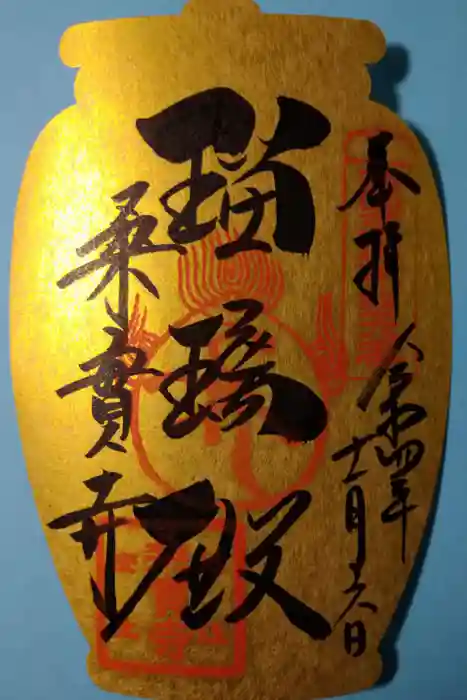 奉拝
令和四年
十一月十六日
瑠璃殿
乗實寺